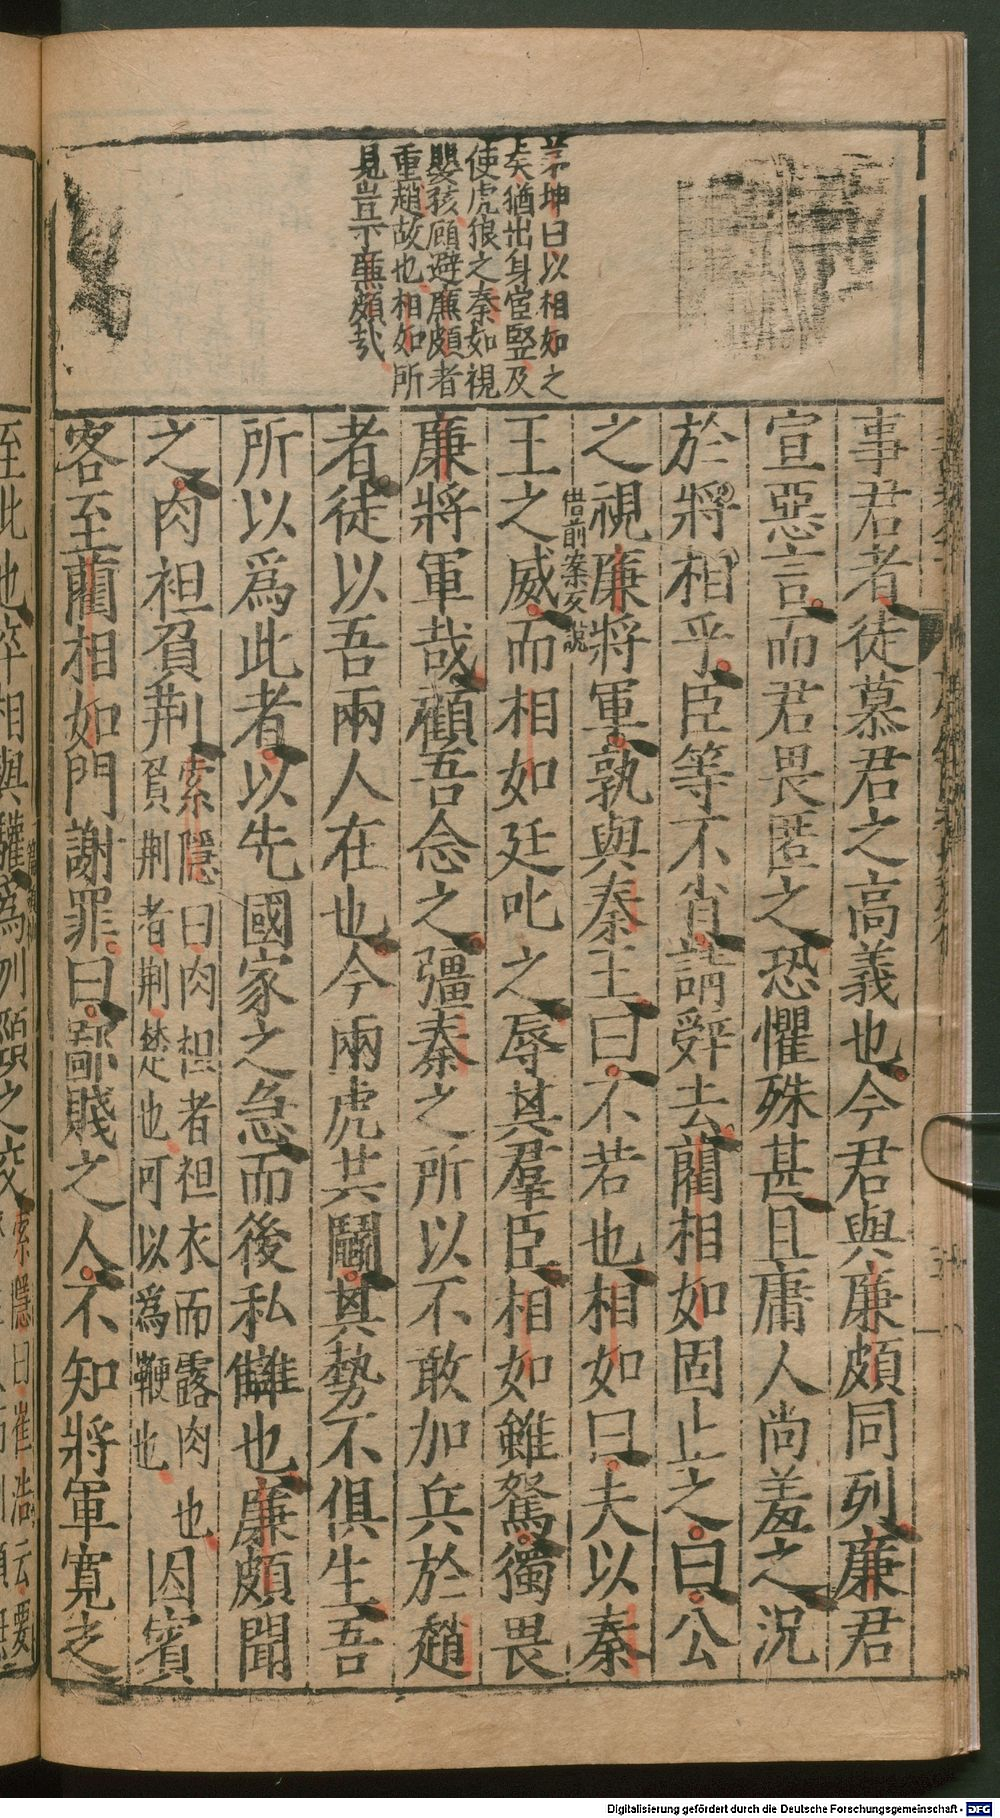 茅坤曰以相如之
使虎狼之秦如視
嬰孩顧避廉頗者
重趙故也相如所
見豈下廉頗哉
事君者徒慕君之高義也今君與廉頗同列廉君
宣惡言而君畏匿之恐懼殊甚且庸人尚羞之況
於將相乎臣等不肖請辭去藺相如固止之曰公
之視廉將軍孰與秦王曰不若也相如曰夫以秦
借前案
王之威而相如廷叱之辱其羣臣相如雖駑獨畏
廉將軍哉顧吾念之彊秦之所以不敢加兵於趙
者徒以吾兩人在也今兩虎共鬭其勢不俱生吾
所以爲此者以先國家之急而後私讎也廉頗聞
之肉袒負荆
索隱曰肉袒者袒衣而露肉也
負荆者荆楚也可以爲鞭也
因賓
客至藺相如門謝罪曰鄙賤之人不知將軍寬之
至此也卒相與驩爲刎頸之交
索隱曰崔浩云
Digitalisierung gefördert durch die Deutsche Forschungsgemeinschaft - DFG